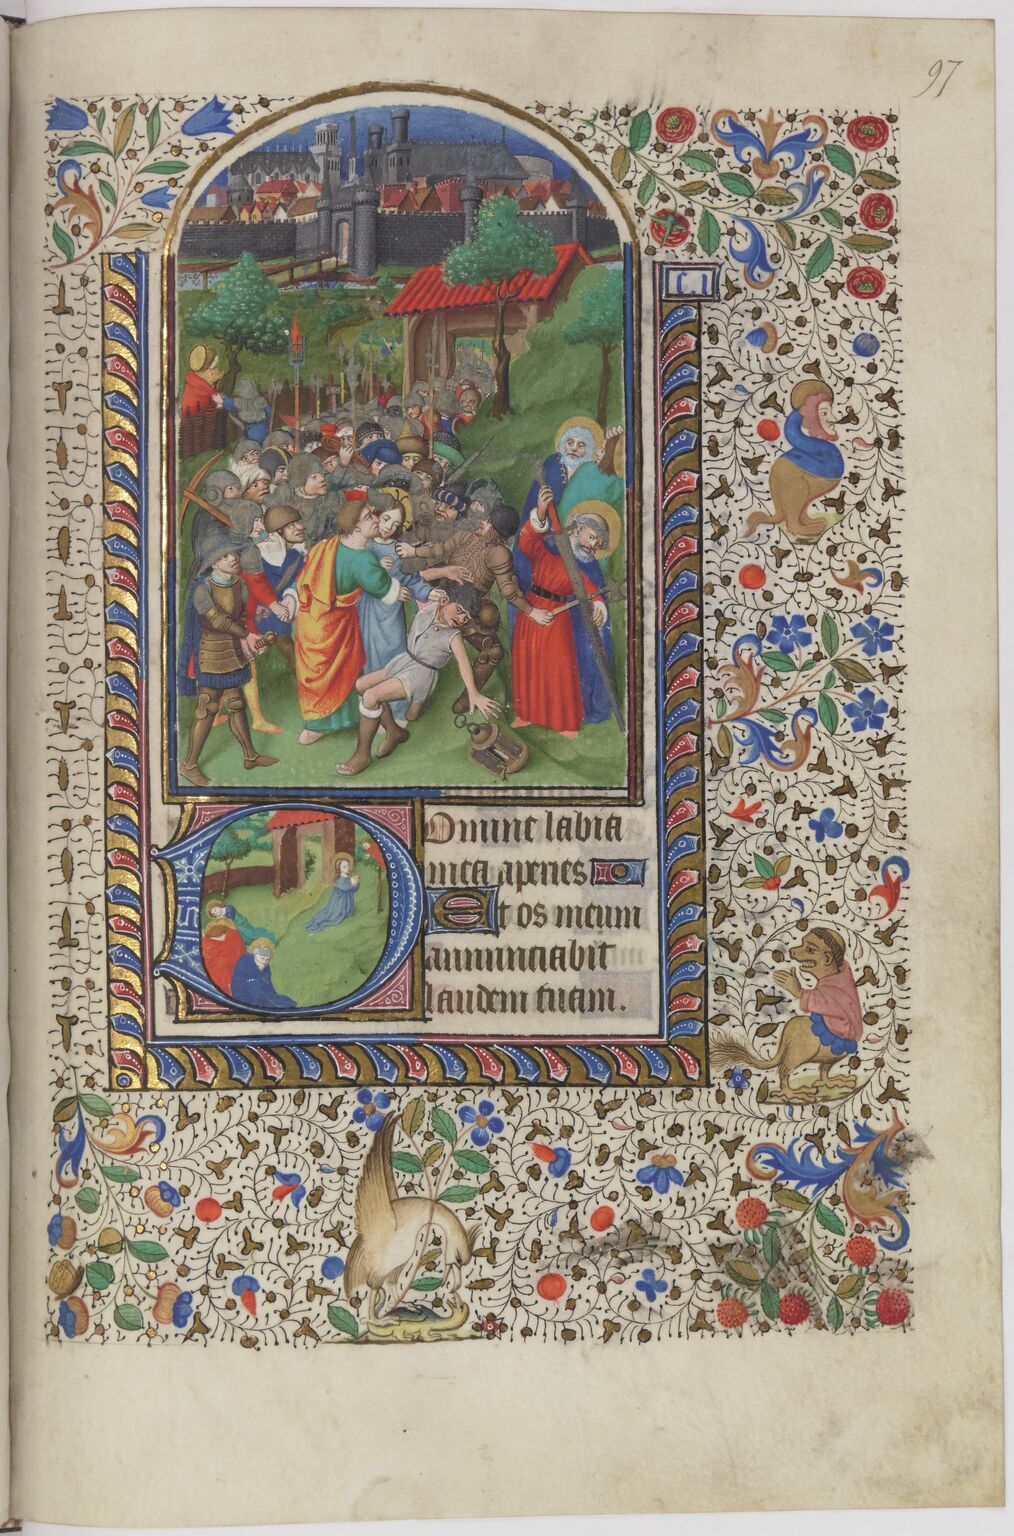 97
Domine labia
mea aperies
Et os meum
annunciabit
laudem tuam.